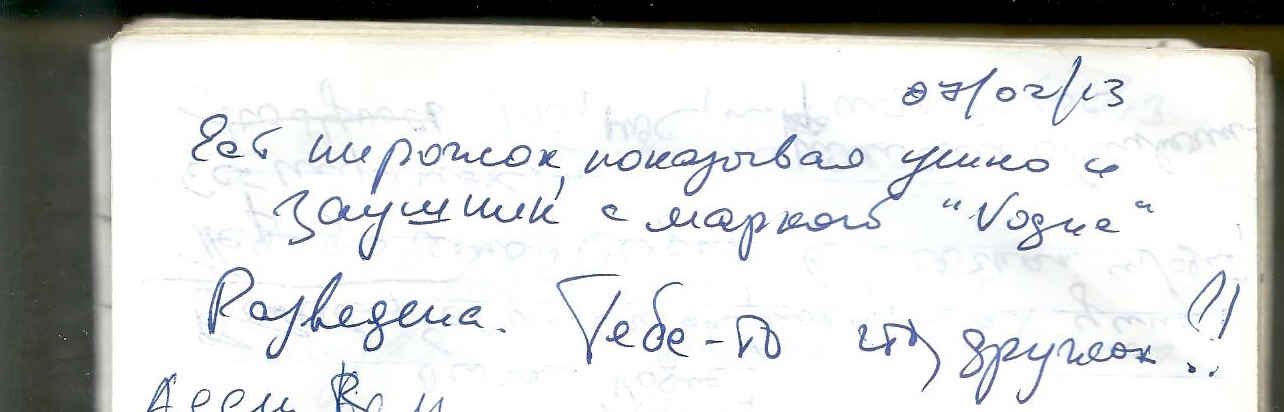 07/02/13
Ест пирожок, показывая ушко и
Заушник с маркой "Vogue"
Разведена. Тебе-то что, дружок?!!